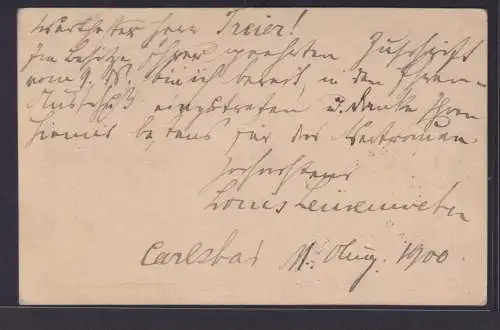 Werthester Herr Treier!
Im Besitze Ihrer geehrten Zuschrift
vom 9. ds. bin ich bereit, in den Ehren-
Ausschuß einzutreten u. danke Ihnen
hiemit bestens für das Vertrauen.
Hochachtend
Louis
Carlsbad 11. Aug. 1900